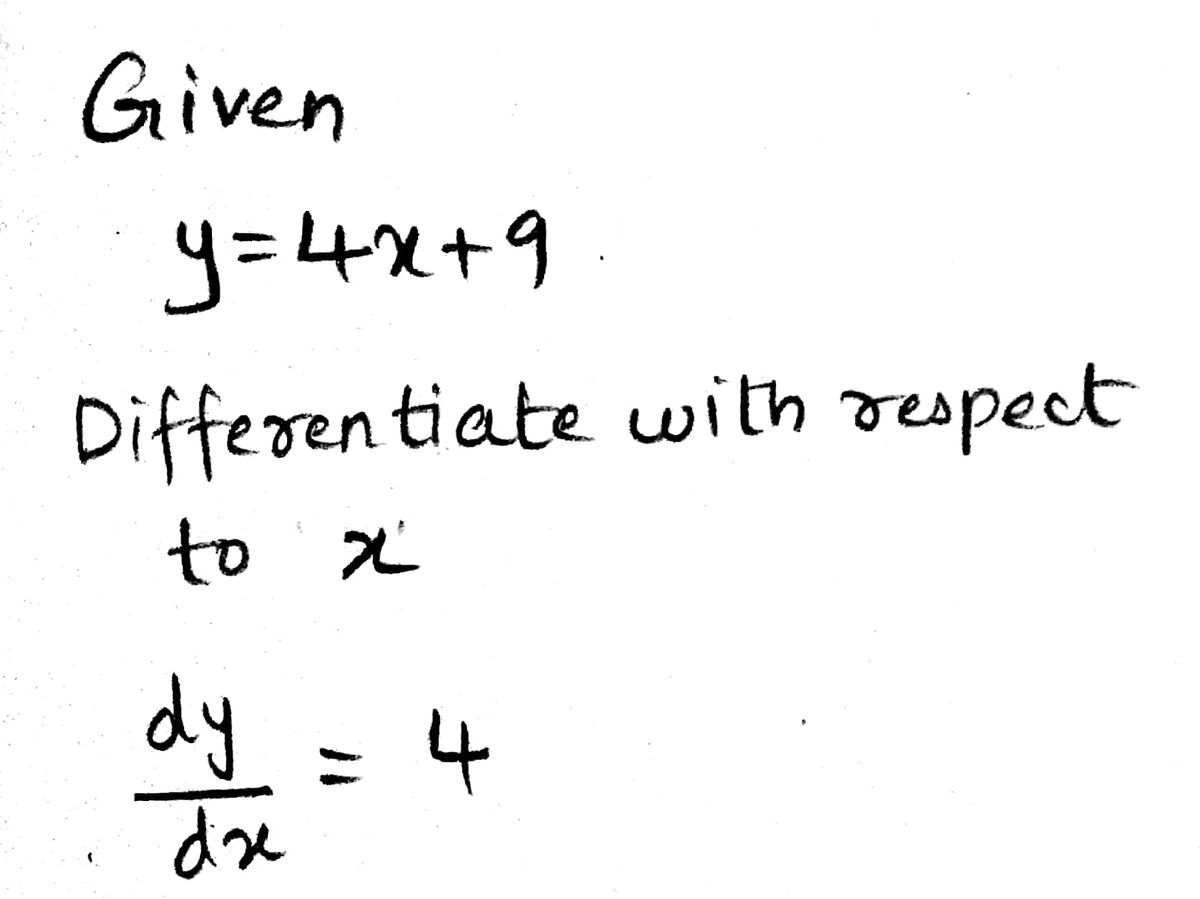 Given
y=4x+9
Differentiate with respect
to x
dy/dx = 4